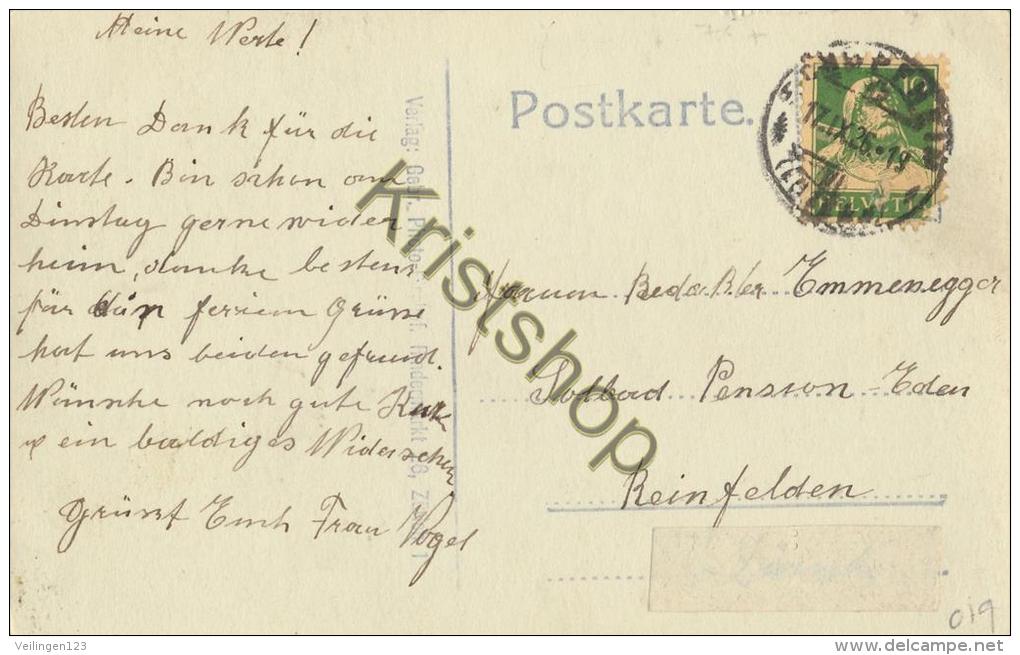 Meine Werte!
Besten Dank für die
Karte. Bin schon am
Dinstag gerne wider
heim, danke bestens
für ferien Grüsse
hat uns beiden gefreud.
Wünsche noch gute Kur
ein baldiges Widersehen
Grüsst Euch Frau Vogel
Verlag: Gebr.
Postkarte.
10
17.IX.26.-19
HELVETIA
Emmenegger
Soolbad Pension-Eden
Reinfelden
Kristshop
019
Veilingen123
delcampe.net